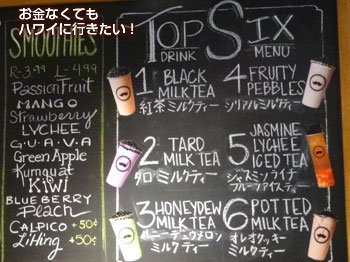 お金なくても
ハワイに行きたい！
SMOOTHIES
R-3.99 L-4.99
Passion Fruit
MANGO
Strawberry
LYCHEE
G.U.A.V.A
Green Apple
Kumquat
KIWI
BLUEBERRY
Peach
CALPICO +50¢
Li Hing +50¢
TOP SIX
DRINK MENU
1 BLACK
MILK TEA
紅茶ミルクティー
2 TARO
MILK TEA
タロ ミルクティー
3 HONEYDEW
MILK TEA
ハニーデュウメロン
ミルクティー
4 FRUITY
PEBBLES
シリアルミルクティー
5 JASMINE
LYCHEE
ICED TEA
ジャスミンライチ
フルーツアイスティー
6 POTTED
MILK TEA
オレオクッキー
ミルクティー